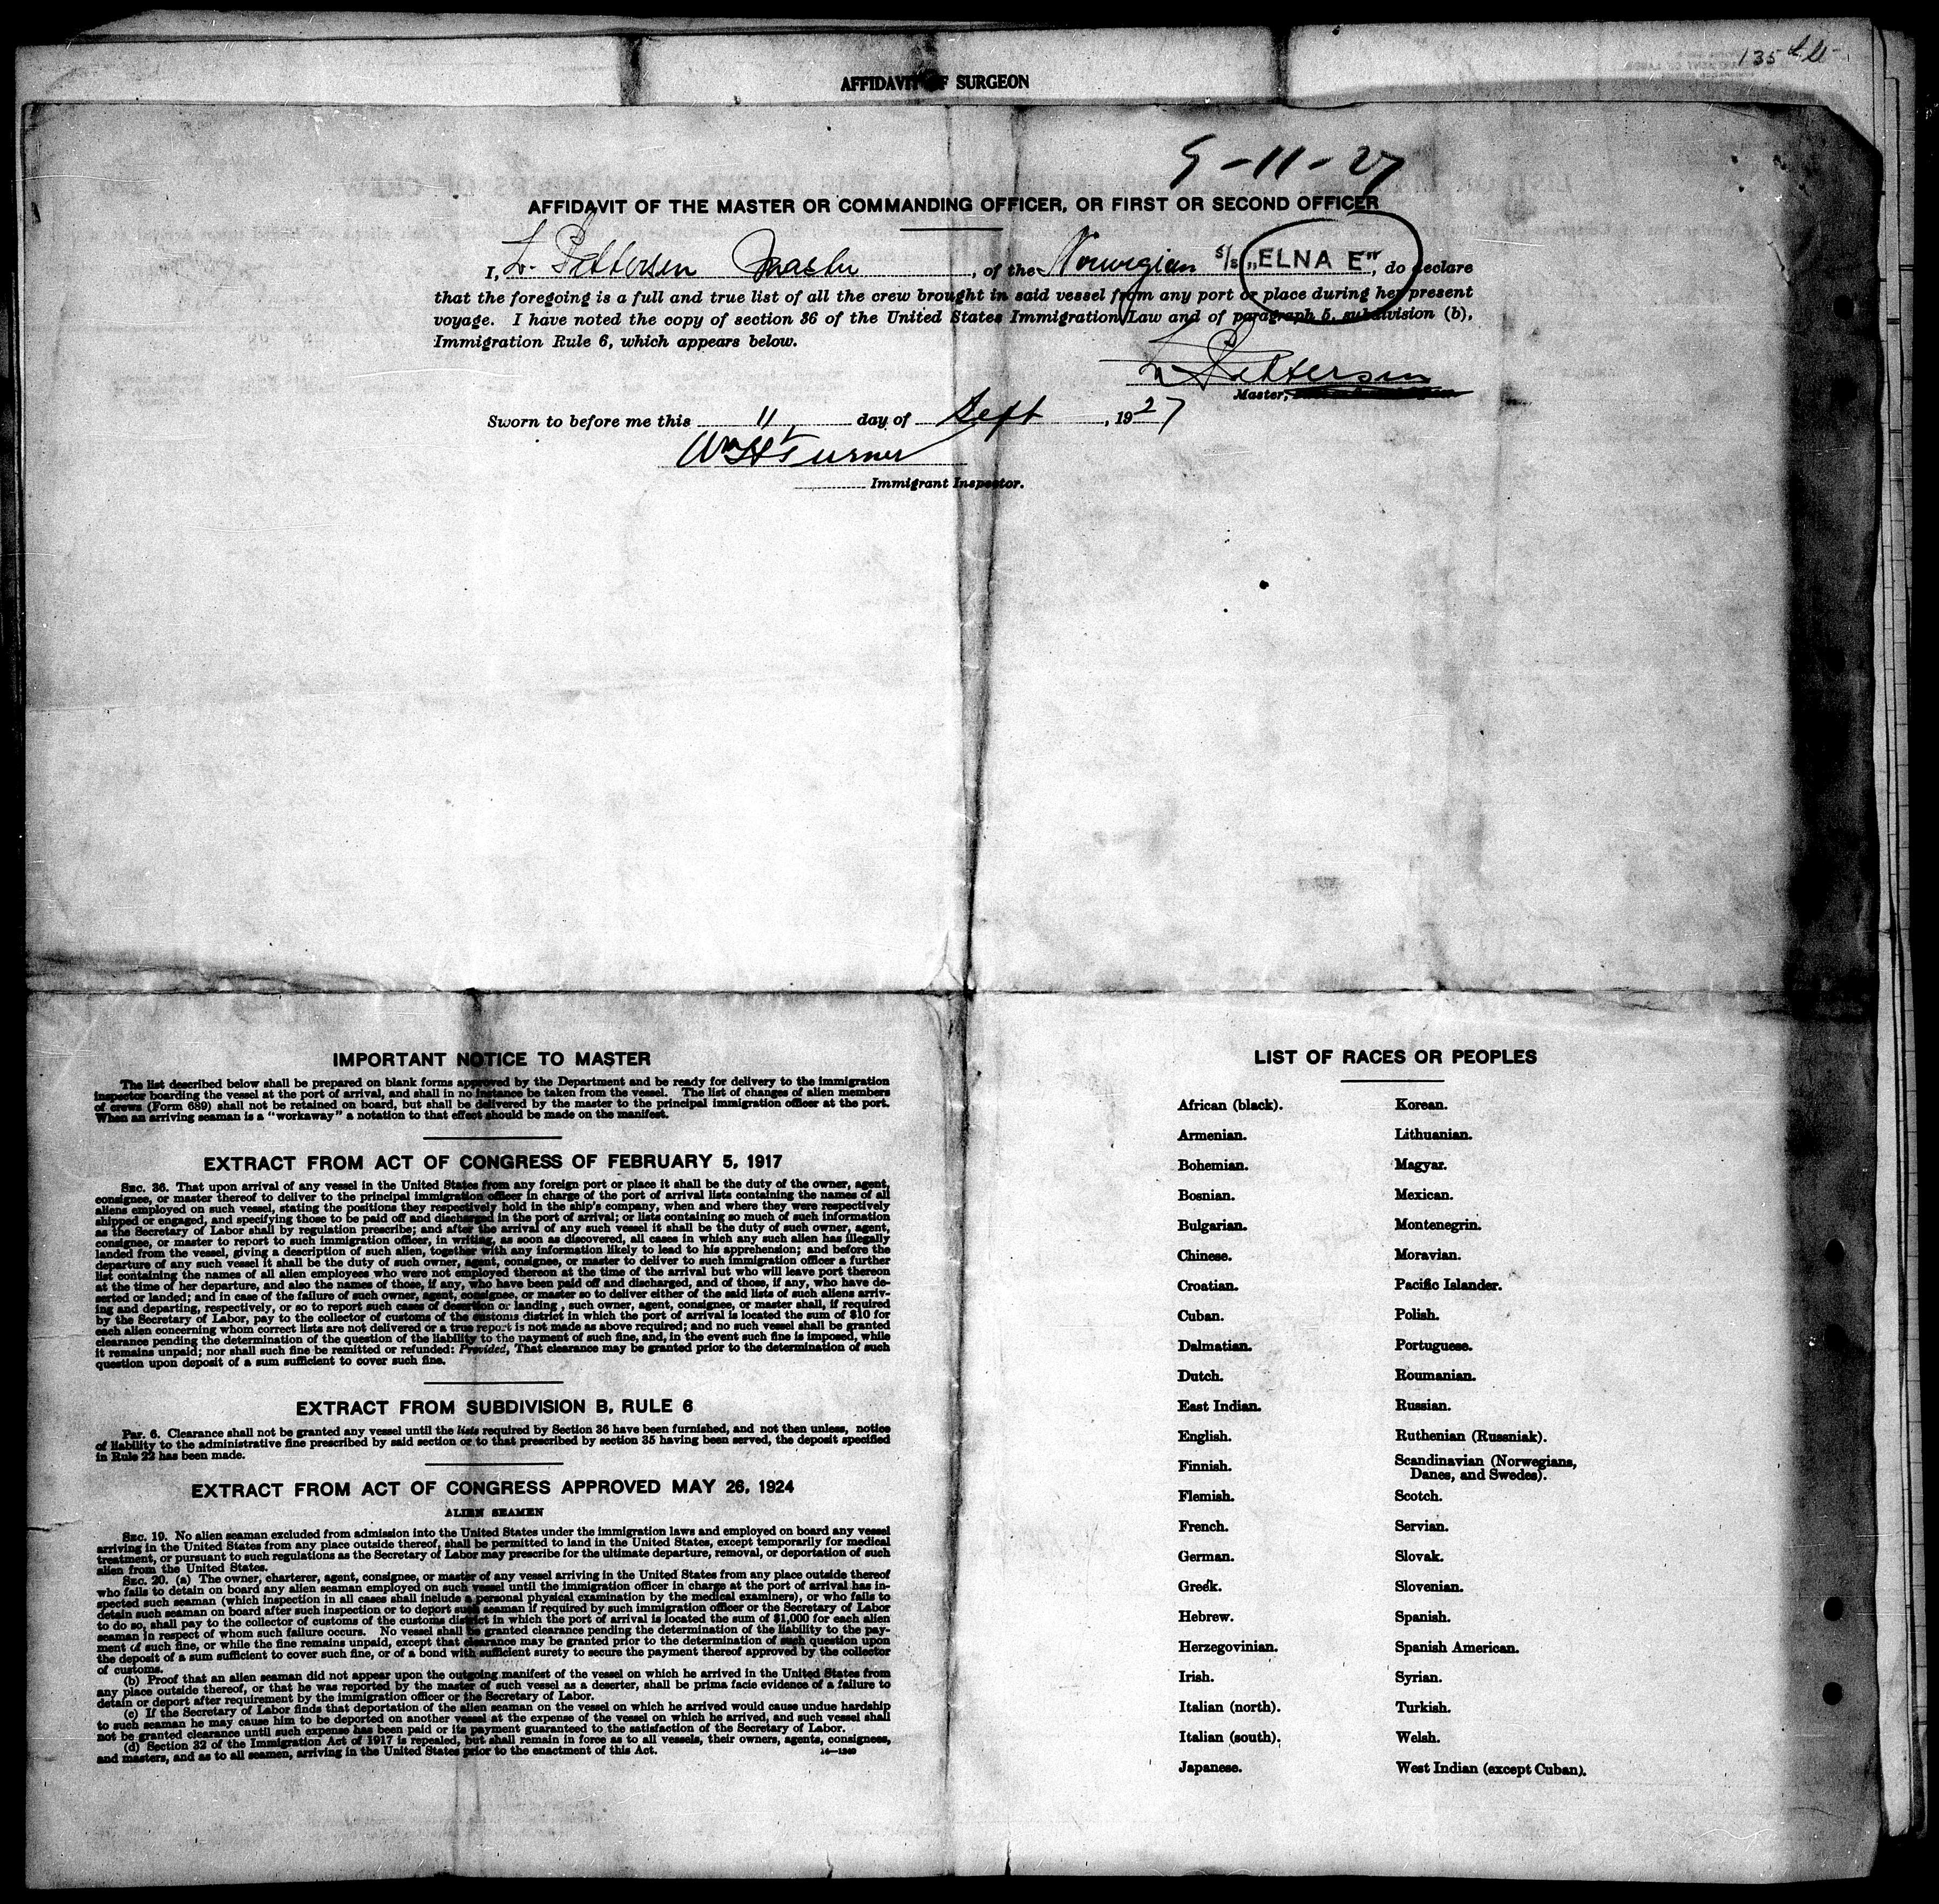 135
AFFIDAVIT OF SURGEON
9-11-27
AFFIDAVIT OF THE MASTER OR COMMANDING OFFICER, OR FIRST OR SECOND OFFICER
I, L. Pettersen Master, of the Norwegian S/S „ELNA E", do declare
that the foregoing is a full and true list of all the crew brought in said vessel from any port or place during her present
voyage. I have noted the copy of section 36 of the United States Immigration Law and of paragraph 5, subdivision (b),
Immigration Rule 6, which appears below.
L Pettersen
Master,
Sworn to before me this 11 day of Sept, 1927
Wm H Turner
Immigrant Inspector.
IMPORTANT NOTICE TO MASTER
The list described below shall be prepared on blank forms approved by the Department and be ready for delivery to the immigration
inspector boarding the vessel at the port of arrival, and shall in no instance be taken from the vessel. The list of changes of alien members
of crews (Form 689) shall not be retained on board, but shall be delivered by the master to the principal immigration officer at the port.
When an arriving seaman is a "workaway" a notation to that effect should be made on the manifest.
EXTRACT FROM ACT OF CONGRESS OF FEBRUARY 5, 1917
SEC. 36. That upon arrival of any vessel in the United States from any foreign port or place it shall be the duty of the owner, agent,
consignee, or master thereof to deliver to the principal immigration officer in charge of the port of arrival lists containing the names of all
aliens employed on such vessel, stating the positions they respectively hold in the ship's company, when and where they were respectively
shipped or engaged, and specifying those to be paid off and discharged in the port of arrival; or lists containing so much of such information
as the Secretary of Labor shall by regulation prescribe; and after the arrival of any such vessel it shall be the duty of such owner, agent,
consignee, or master to report to such immigration officer, in writing, as soon as discovered, all cases in which any such alien has illegally
landed from the vessel, giving a description of such alien, together with any information likely to lead to his apprehension; and before the
departure of any such vessel it shall be the duty of such owner, agent, consignee, or master to deliver to such immigration officer a further
list containing the names of all alien employees who were not employed thereon at the time of the arrival but who will leave port thereon
at the time of her departure, and also the names of those, if any, who have been paid off and discharged, and of those, if any, who have de-
serted or landed; and in case of the failure of such owner, agent, consignee, or master so to deliver either of the said lists of such aliens arriv-
ing and departing, respectively, or so to report such cases of desertion or landing, such owner, agent, consignee, or master shall, if required
by the Secretary of Labor, pay to the collector of customs of the customs district in which the port of arrival is located the sum of $10 for
each alien concerning whom correct lists are not delivered or a true report is not made as above required; and no such vessel shall be granted
clearance pending the determination of the question of the liability to the payment of such fine, and, in the event such fine is imposed, while
it remains unpaid; nor shall such fine be remitted or refunded: Provided, That clearance may be granted prior to the determination of such
question upon deposit of a sum sufficient to cover such fine.
EXTRACT FROM SUBDIVISION B, RULE 6
PAR. 6. Clearance shall not be granted any vessel until the lists required by Section 36 have been furnished, and not then unless, notice
of liability to the administrative fine prescribed by said section or to that prescribed by section 35 having been served, the deposit specified
in Rule 22 has been made.
EXTRACT FROM ACT OF CONGRESS APPROVED MAY 26, 1924
ALIEN SEAMEN
SEC. 19. No alien seaman excluded from admission into the United States under the immigration laws and employed on board any vessel
arriving in the United States from any place outside thereof, shall be permitted to land in the United States, except temporarily for medical
treatment, or pursuant to such regulations as the Secretary of Labor may prescribe for the ultimate departure, removal, or deportation of such
alien from the United States.
SEC. 20. (a) The owner, charterer, agent, consignee, or master of any vessel arriving in the United States from any place outside thereof
who fails to detain on board any alien seaman employed on such vessel until the immigration officer in charge at the port of arrival has in-
spected such seaman (which inspection in all cases shall include a personal physical examination by the medical examiners), or who fails to
detain such seaman on board after such inspection or to deport such seaman if required by such immigration officer or the Secretary of Labor
to do so, shall pay to the collector of customs of the customs district in which the port of arrival is located the sum of $1,000 for each alien
seaman in respect of whom such failure occurs. No vessel shall be granted clearance pending the determination of the liability to the pay-
ment of such fine, or while the fine remains unpaid, except that clearance may be granted prior to the determination of such question upon
the deposit of a sum sufficient to cover such fine, or of a bond with sufficient surety to secure the payment thereof approved by the collector
of customs.
(b) Proof that an alien seaman did not appear upon the outgoing manifest of the vessel on which he arrived in the United States from
any place outside thereof, or that he was reported by the master of such vessel as a deserter, shall be prima facie evidence of a failure to
detain or deport after requirement by the immigration officer or the Secretary of Labor.
(c) If the Secretary of Labor finds that deportation of the alien seaman on the vessel on which he arrived would cause undue hardship
to such seaman he may cause him to be deported on another vessel at the expense of the vessel on which he arrived, and such vessel shall
not be granted clearance until such expense has been paid or its payment guaranteed to the satisfaction of the Secretary of Labor.
(d) Section 32 of the Immigration Act of 1917 is repealed, but shall remain in force as to all vessels, their owners, agents, consignees,
and masters, and as to all seamen, arriving in the United States prior to the enactment of this Act.
14—1240
LIST OF RACES OR PEOPLES
African (black).
Armenian.
Bohemian.
Bosnian.
Bulgarian.
Chinese.
Croatian.
Cuban.
Dalmatian.
Dutch.
East Indian.
English.
Finnish.
Flemish.
French.
German.
Greek.
Hebrew.
Herzegovinian.
Irish.
Italian (north).
Italian (south).
Japanese.
Korean.
Lithuanian.
Magyar.
Mexican.
Montenegrin.
Moravian.
Pacific Islander.
Polish.
Portuguese.
Roumanian.
Russian.
Ruthenian (Russniak).
Scandinavian (Norwegians,
Danes, and Swedes).
Scotch.
Servian.
Slovak.
Slovenian.
Spanish.
Spanish American.
Syrian.
Turkish.
Welsh.
West Indian (except Cuban).